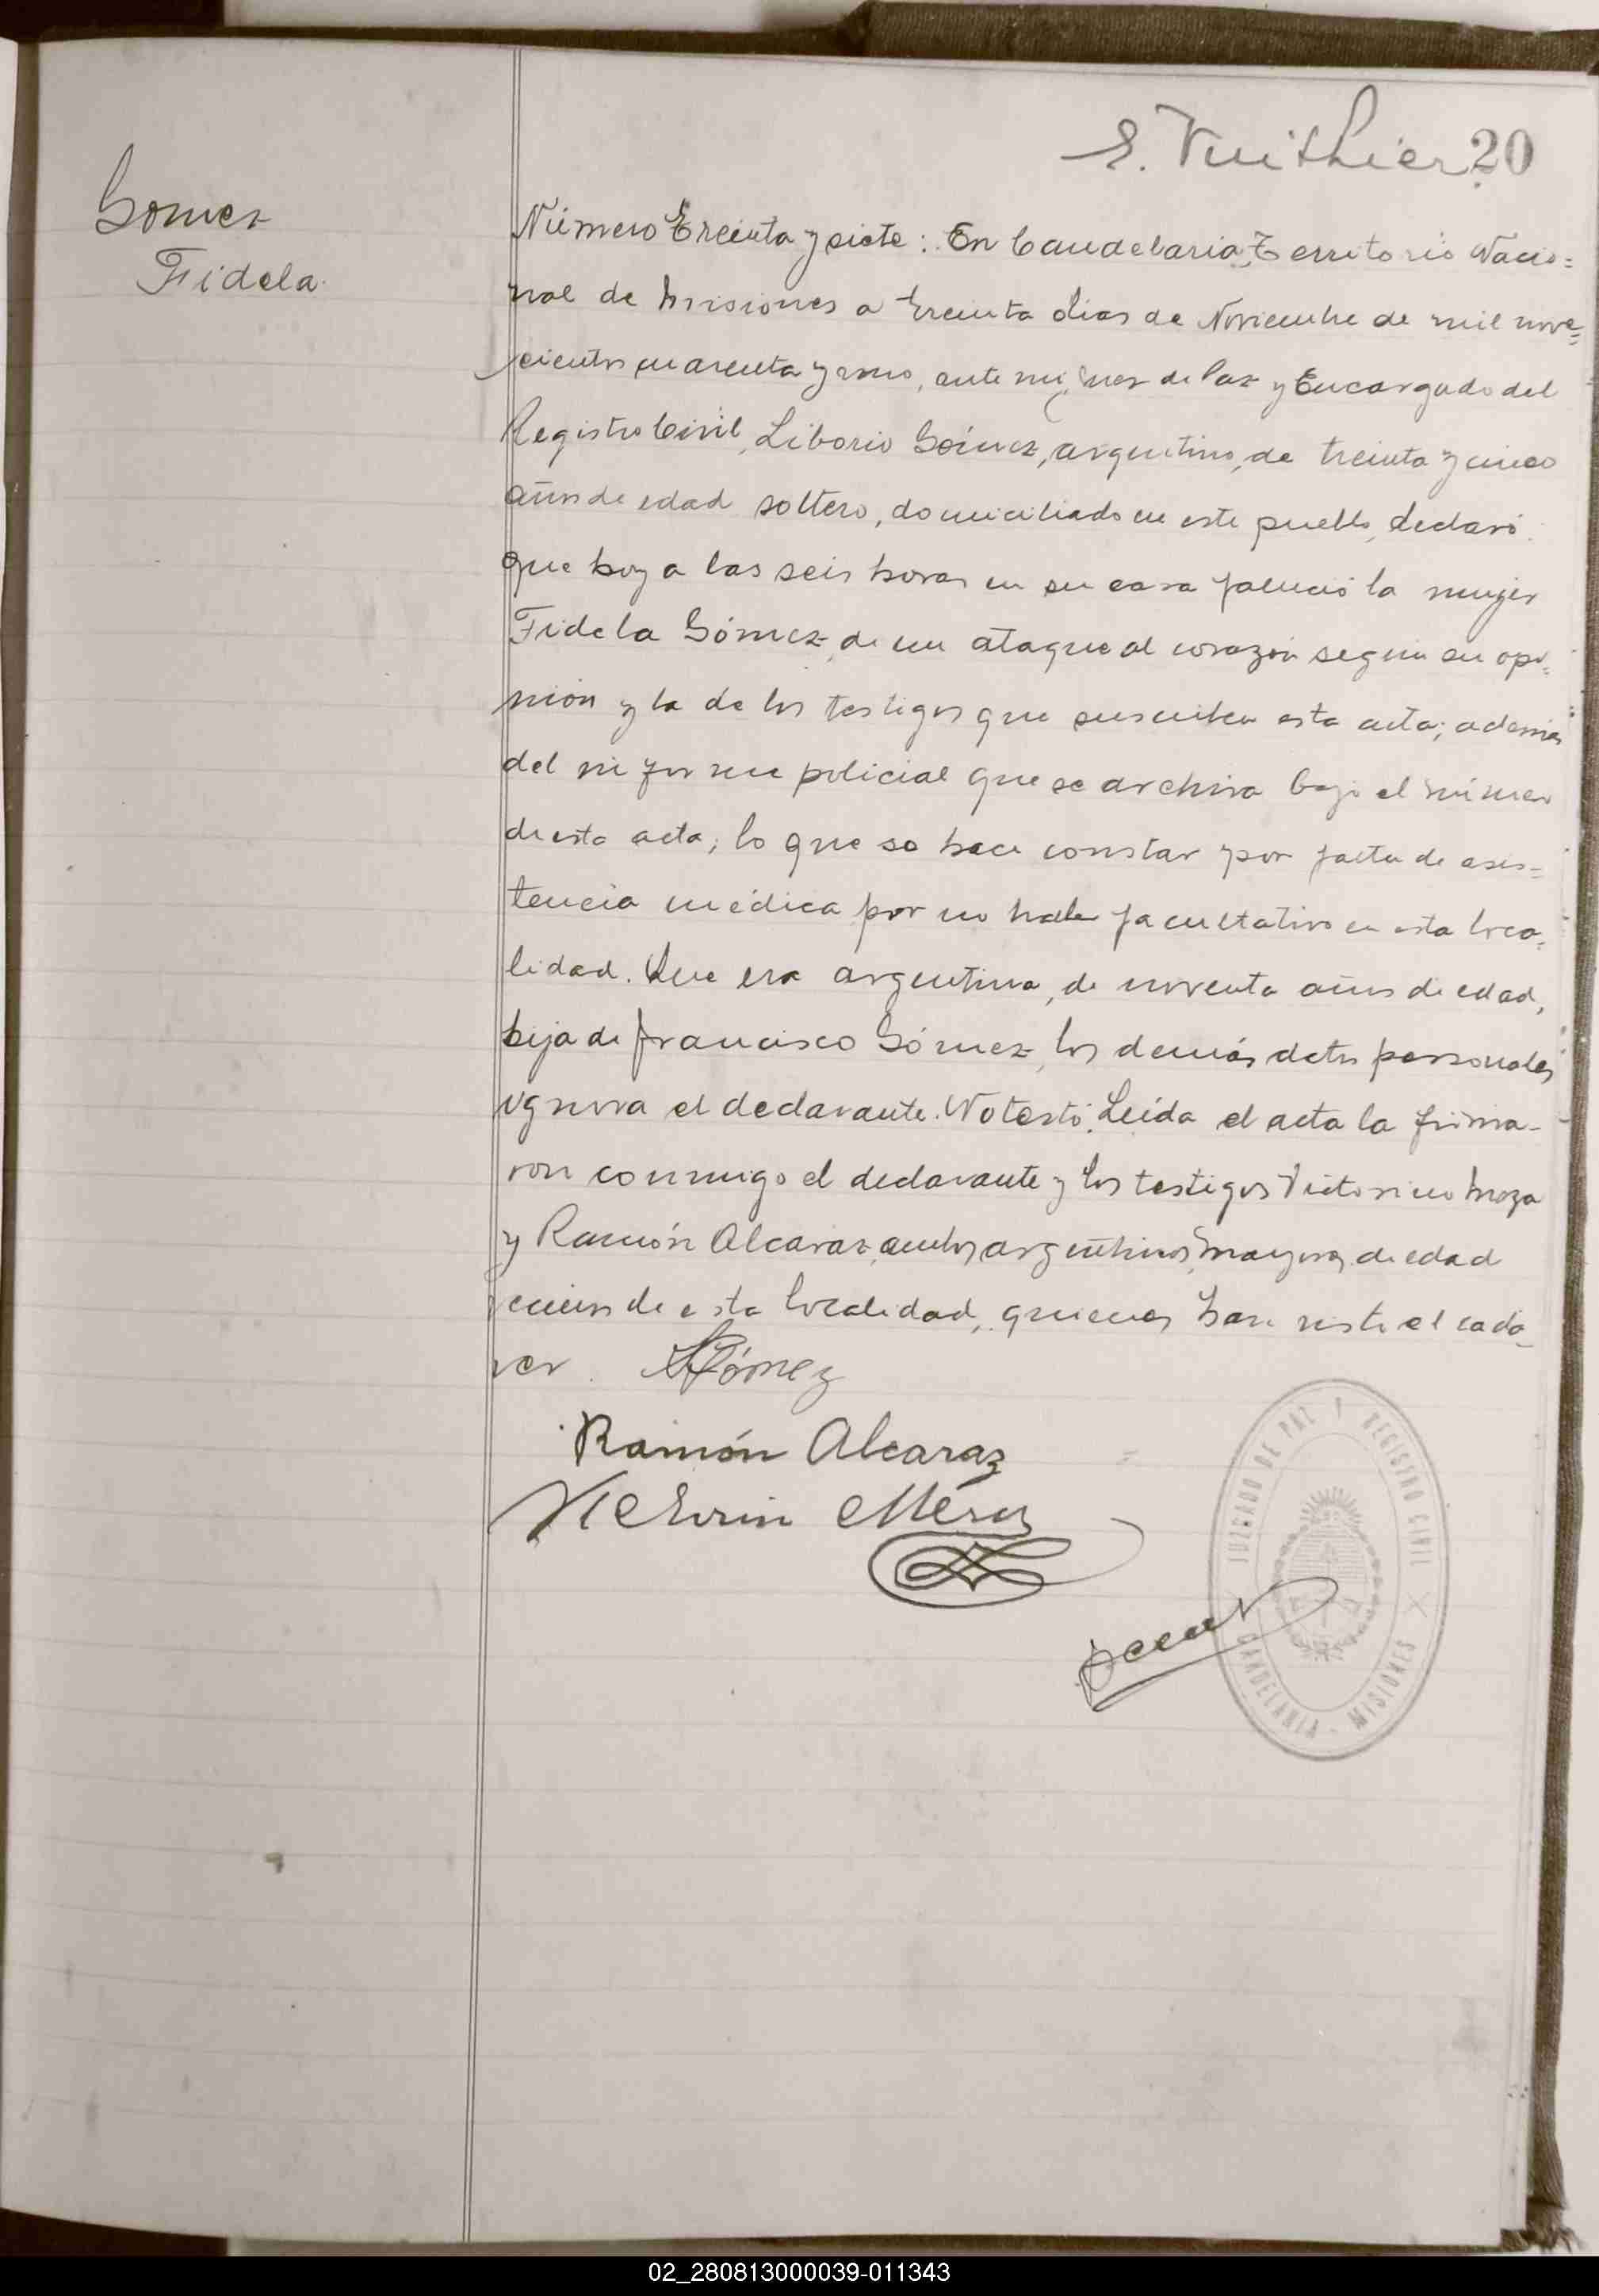 E. Vuithier 20
Gomez
Fidela.
Número Treinta y siete: En Candelaria, Territorio Nacio=
nal de Misiones a treinta dias de Noviembre de mil nove=
cientos cuarenta y uno, ante mi, Juez de Paz y Encargado del
Registro Civil, Liborio Gómez, argentino, de treinta y cinco
años de edad soltero, domiciliado en este pueblo, declaró
que hoy a las seis horas en su casa falleció la mujer
Fidela Gómez, de un ataque al corazón según su opi=
nión y la de los testigos que suscriben esta acta; además
del informe policial que se archiva bajo el número
de esta acta; lo que se hace constar por falta de asis=
tencia médica por no haber facultativo en esta loca=
lidad. Que era argentina, de noventa años de edad,
hija de Francisco Gómez, los demás datos personales
ignora el declarante. No testó. Leída el acta la firma-
ron conmigo el declarante y los testigos Victorino
y Ramón Alcaraz, ambos argentinos, mayores de edad
vecinos de esta localidad, quienes han visto el cadá-
ver. LGómez
Ramón Alcaraz
JUZGADO DE PAZ Y REGISTRO CIVIL
CANDELARIA - MISIONES
02_280813000039-011343